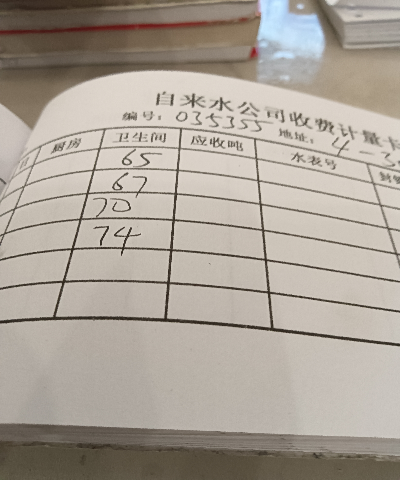 自来水公司收费计量卡
编号: 035355 地址: 4-3
厨房 卫生间 应收吨 水表号
65
67
70
74